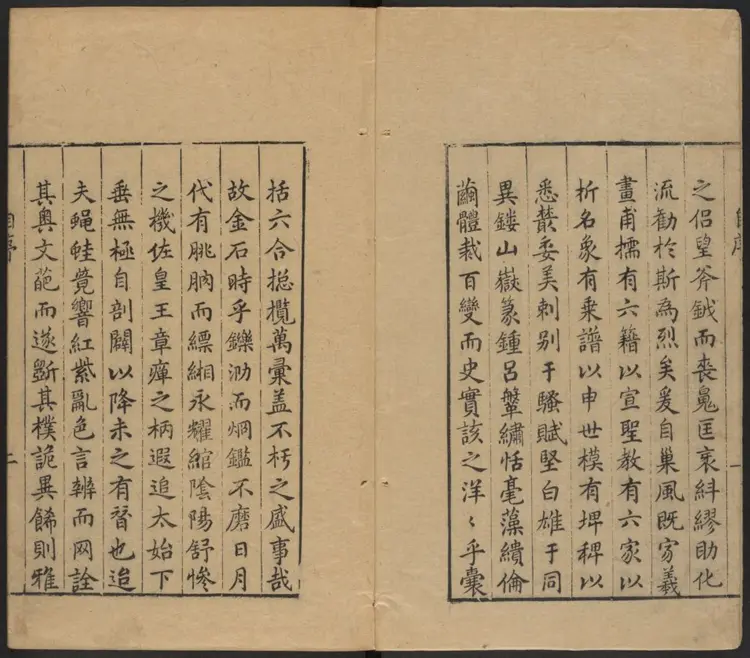 之侶望斧鉞而喪匡衷糾繆助化
流勸於斯為烈矣爰自巢風既穷羲
畫甫擩有六籍以宣聖教有六家以
析名象有乗譜以申世模有埤稗以
悉叢委美刺别于騷賦堅白雄于同
異鏤山嶽篆鍾吕鞶繡恬毫藻繢倫
繭體裁百變而史實該之洋〻乎囊
括六合揔攬萬彙盖不朽之盛事哉
故金石時乎鑠泐而炯鑑不磨日月
代有朓朒而縹緗永耀綰陰陽舒慘
之機佐皇王章癉之柄遐追太始下
垂無極自剖闢以降未之有朁也迨
夫蝿蛙竸響紅紫亂色言辨而网詮
其奥文葩而遂斵其樸詭異餙則雅
自序
二